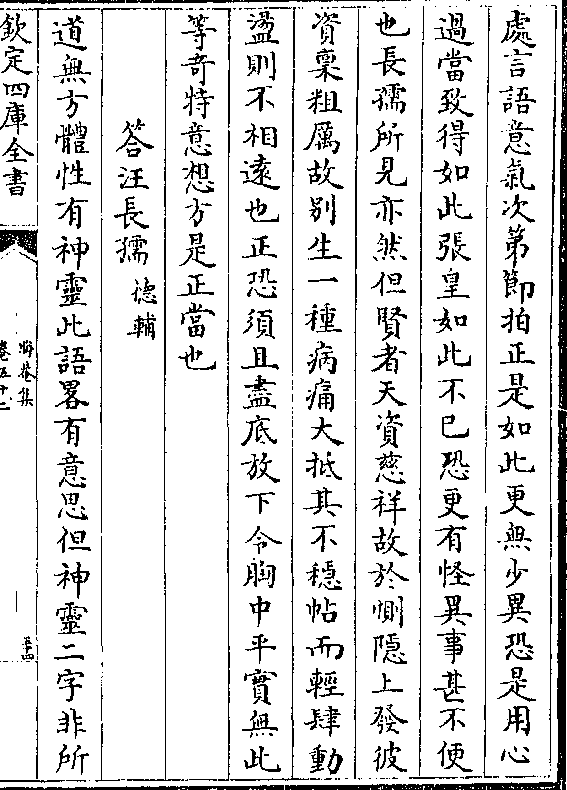 處言語意氣次第節拍正是如此更無少異恐是用心
過當致得如此張皇如此不已恐更有怪異事甚不便
也長孺所見亦然但賢者天資慈祥故於惻隐上發彼
資稟粗厲故别生一種病痛大抵其不穩帖而輕肆動
盪則不相遠也正恐須且盡底放下令胸中平實無此
等奇特意想方是正當也
答汪長孺德輔
道無方體性有神靈此語畧有意思但神靈二字非所
欽定四庫全書
晦菴集
卷五十二
五十四